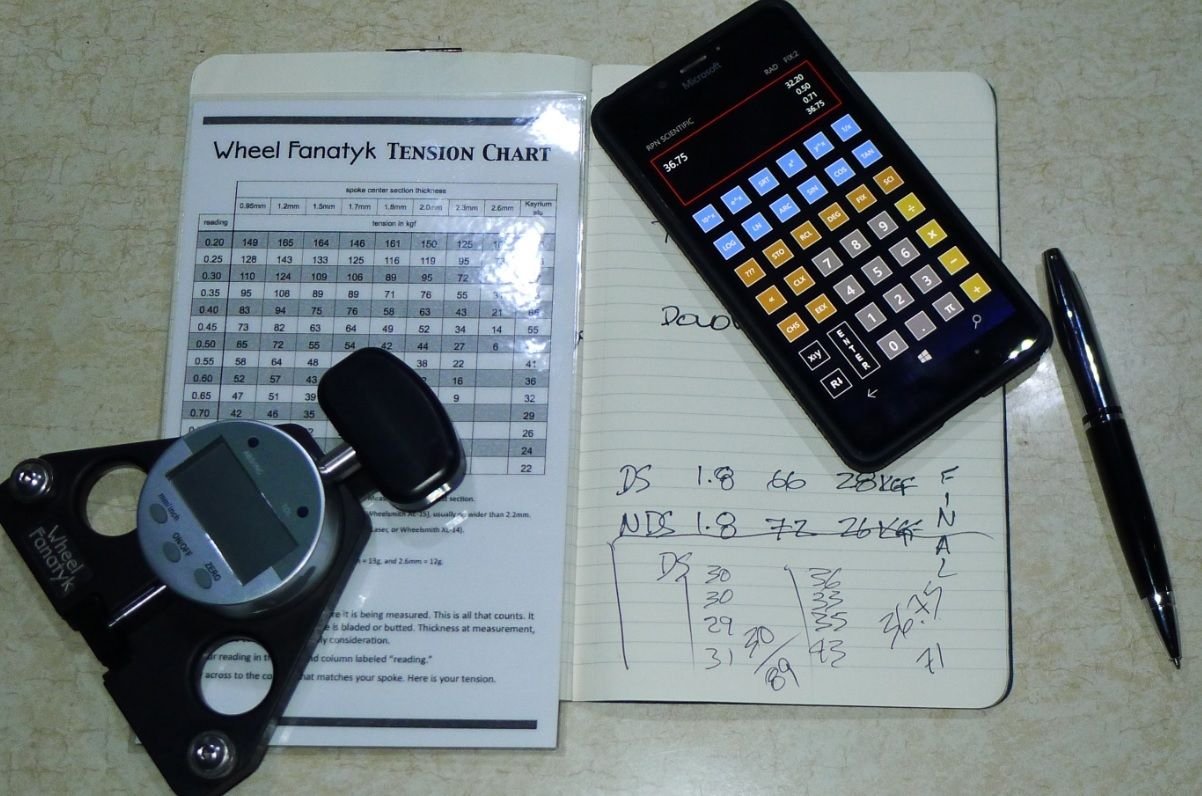 Wheel Fanatyk TENSION CHART
spoke center section thickness
0.95mm 1.2mm 1.5mm 1.7mm 1.8mm 2.0mm 2.3mm 2.6mm Ksyrium alu
reading tension in kgf
0.20 149 165 164 146 161 150 125
0.25 128 143 133 125 116 119 95
0.30 110 124 109 106 89 95 72
0.35 95 108 89 89 71 76 55
0.40 83 94 75 76 58 63 43 21
0.45 73 82 63 64 49 52 34 14 55
0.50 65 72 55 54 42 44 27 6
0.55 58 64 48 38 22 41
0.60 52 57 43 16 36
0.65 47 51 39 9 32
0.70 42 46 35 29
26
24
22
section.
Wheelsmith usually no wider than 2.2mm.
Laser, or Wheelsmith XL-14).
= 13g, and 2.6mm = 12g.
it is being measured. This is all that counts. It
is bladed or butted. Thickness at measurement,
consideration.
reading in column labeled "reading."
across to the that matches your spoke. Here is your tension.
mm/inch
ON/OFF
ZERO
Wheel
Fanatyk
Microsoft
RPN SCIENTIFIC RAD FIX:2
32.20
0.50
0.71
36.75
36.75
10^x e^x SRT x² y^x 1/x
LOG LN ARC SIN COS TAN
??? STO RCL DEG FIX SCI
CLX 7 8 9 ÷
CHS EEX 4 5 6 x
x:y ENTER 1 2 3 −
R↓ 0 . π +
DS 1.8 66 28 KGF
NDS 1.8 72 26 KGF
FINAL
DS 30 36
30 33
29 35
31 43
30/89
36.75
71